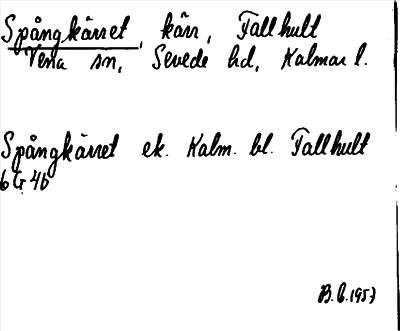 Spångkärret, kärr, Fallhult
Vena sn, Sevede hd, Kalmar l.
Spångkärret ek. Kalm. bl. Fallhult
6 G 4b
B.C. 1957